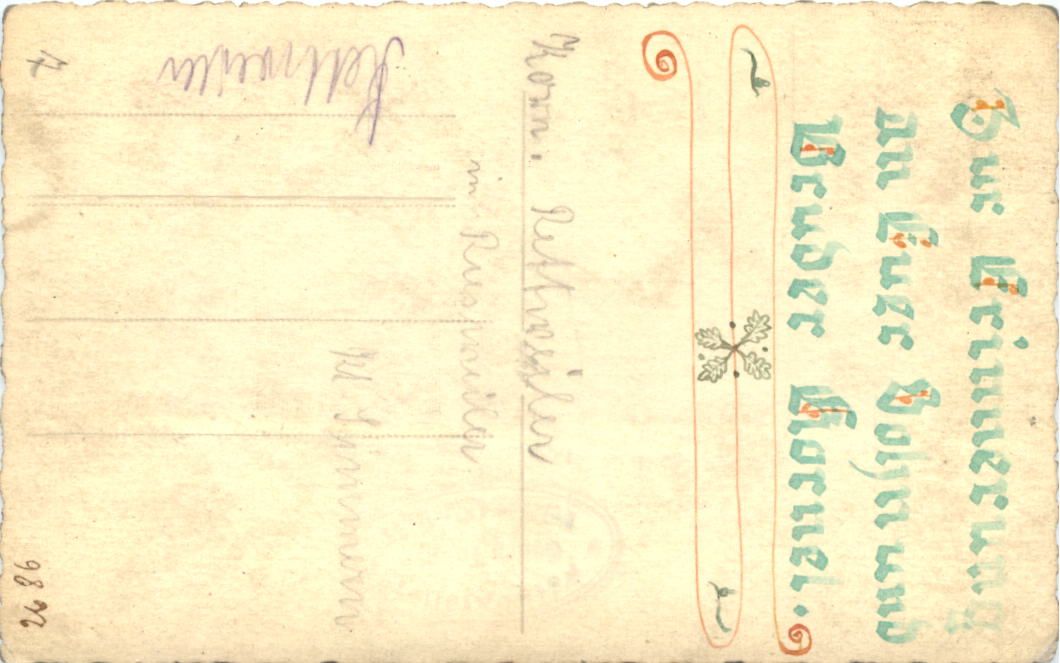 Zur Erinnerung
an Euer Sohn und
Bruder Kornel.
Korn. Rettweiler
in Russweiler
Rettweiler
7
2686